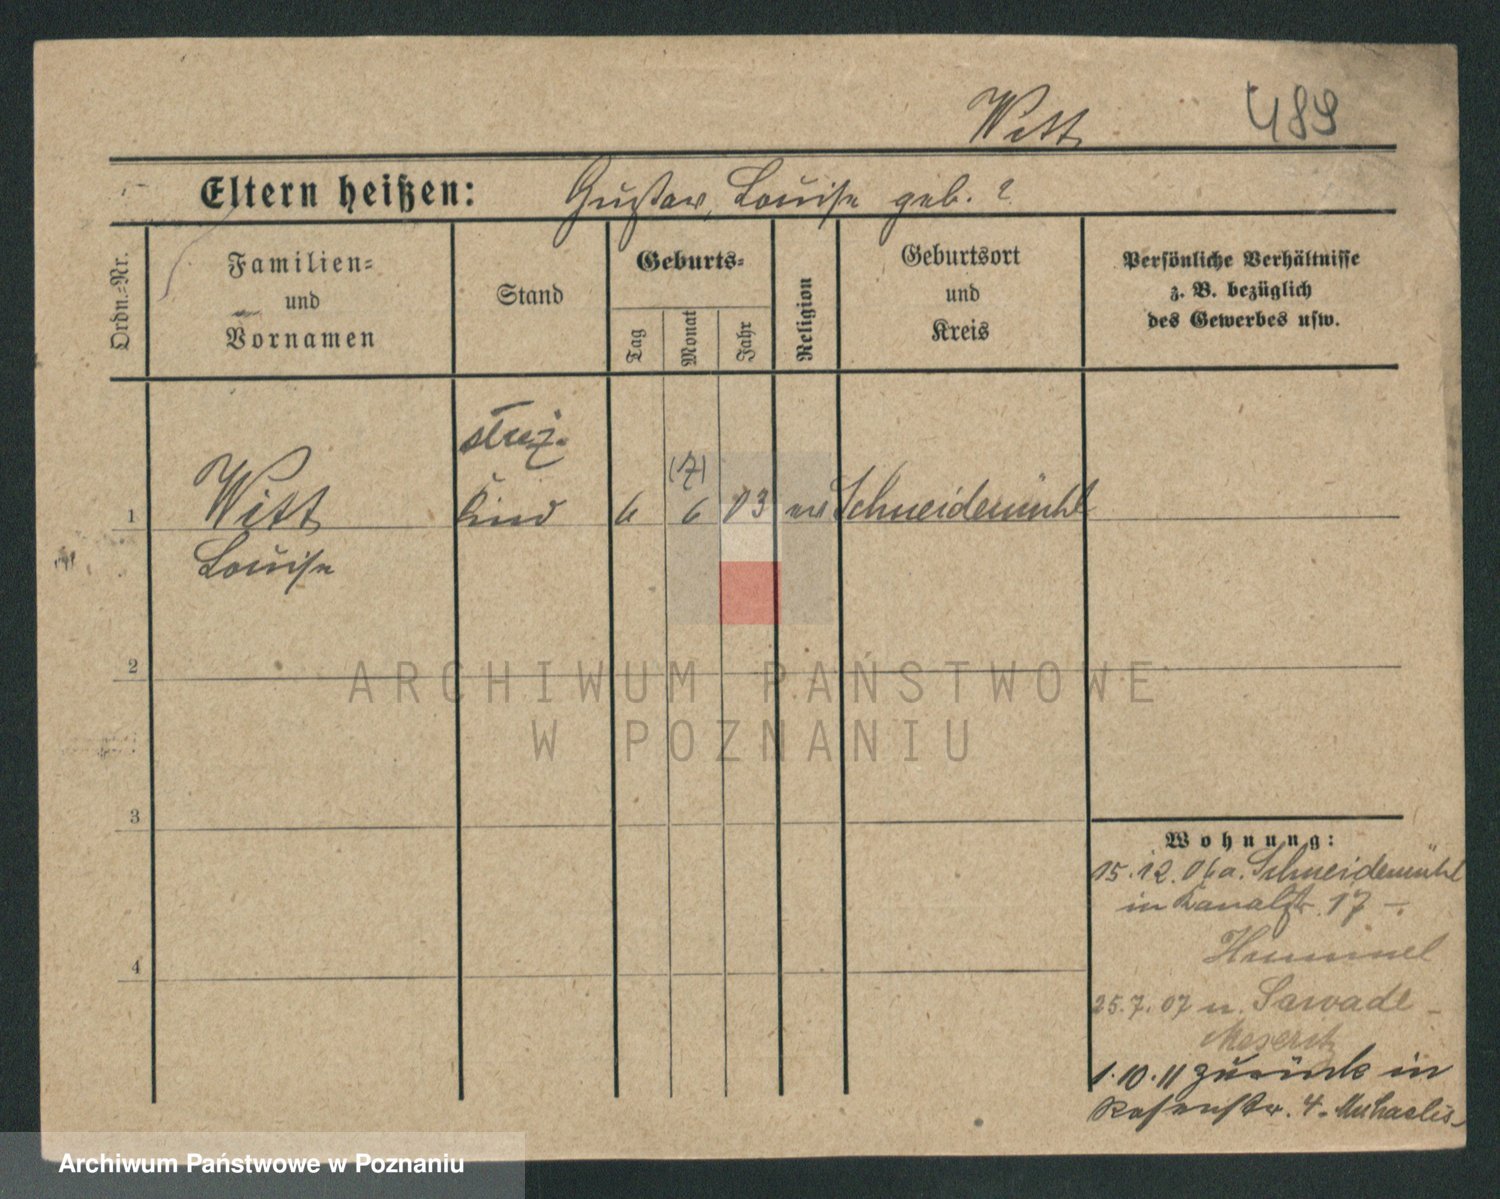 Witt 489
Eltern heißen: Gustav, Louise geb. ?
Ordn.-Nr.
Familien-
und
Vornamen
Stand
Geburts-
Tag
Monat
Jahr
Religion
Geburtsort
und
Kreis
Persönliche Verhältnisse
z. B. bezüglich
des Gewerbes usw.
(7)
1 Witt Kind 6 6 03 Schneidemühl
Louise
2
ARCHIWUM PAŃSTWOWE
W POZNANIU
3
Wohnung:
15.12.06 a. Schneidemühl
in Kanalstr. 17 –
Hummel
4
25.7.07 n. Sawade –
Meseritz
1.10.11 zurück in
Rosenstr. 4. Michaelis
Archiwum Państwowe w Poznaniu